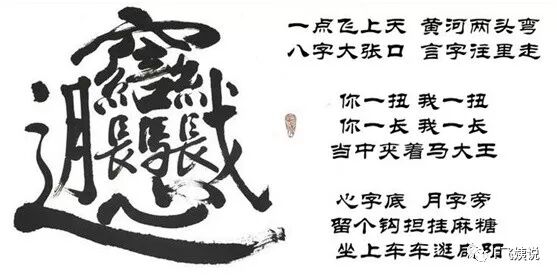 𰻞
一点飞上天 黄河两头弯
八字大张口 言字往里走
你一扭 我一扭
你一长 我一长
当中夹着马大王
心字底 月字旁
留个钩担挂麻糖
坐上车车逛咸阳
飞姨说